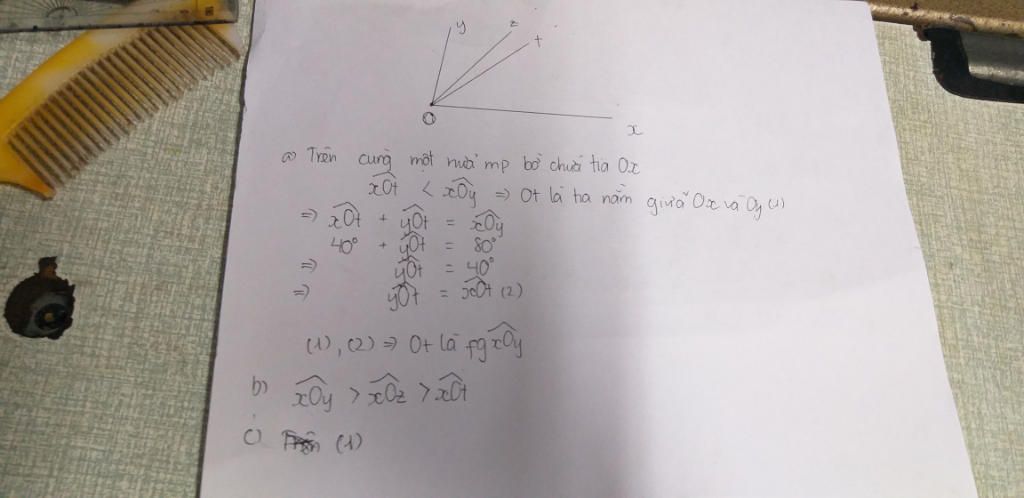 y z t
O
x
a) Trên cùng một nửa mp bờ chứa tia Ox
xOt < xOy => Ot là tia nằm giữa Ox và Oy (1)
=> xOt + yOt = xOy
40° + yOt = 80°
=> yOt = 40°
=> yOt = xOt (2)
(1), (2) => Ot là fg xOy
b) xOy > xOz > xOt
c) (1)